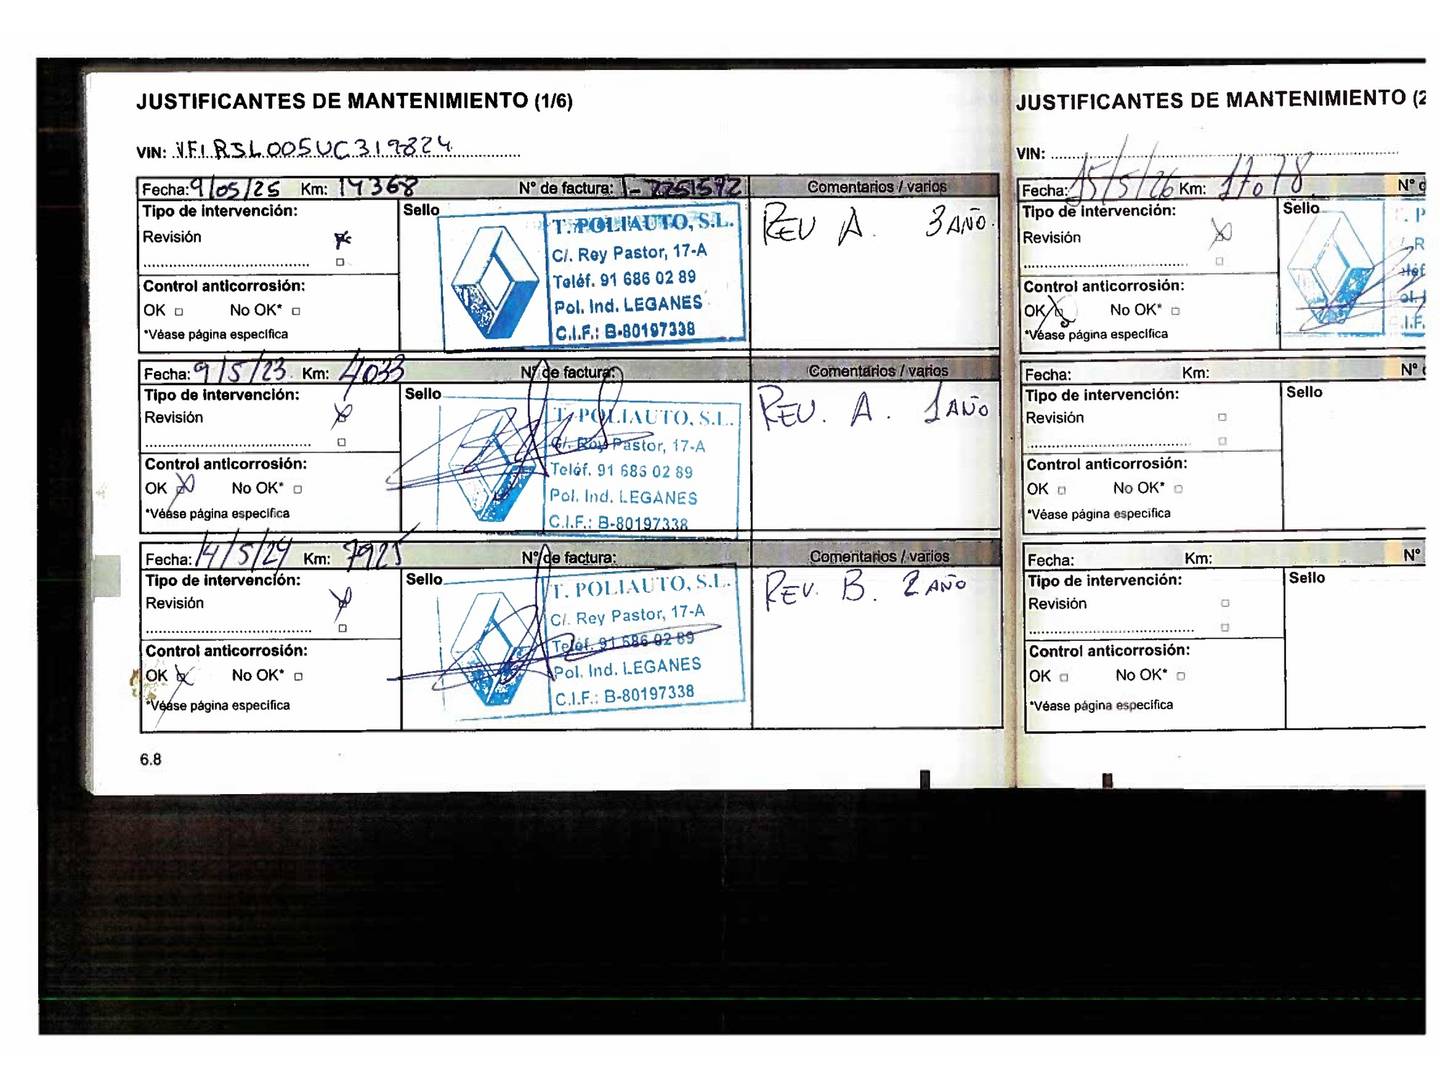 JUSTIFICANTES DE MANTENIMIENTO (1/6)
VIN: VF1RJL005UC319824
Fecha: 9/05/25 Km: 14368 N° de factura: 1-2251572 Comentarios / varios
Tipo de intervención:
Revisión
Sello
T. POLIAUTO, S.L.
C/. Rey Pastor, 17-A
Teléf. 91 686 02 89
Pol. Ind. LEGANES
C.I.F.: B-80197338
REV A. 3 AÑO.
Control anticorrosión:
OK No OK*
*Véase página específica
Fecha: 9/5/23 Km: 4033 N° de factura: Comentarios / varios
Tipo de intervención:
Revisión
Sello
T. POLIAUTO, S.L.
C/. Rey Pastor, 17-A
Teléf. 91 686 02 89
Pol. Ind. LEGANES
C.I.F.: B-80197338
REV. A. 1 AÑO
Control anticorrosión:
OK No OK*
*Véase página específica
Fecha: 14/5/24 Km: 7925 N° de factura: Comentarios / varios
Tipo de intervención:
Revisión
Sello
T. POLIAUTO, S.L.
C/. Rey Pastor, 17-A
Teléf. 91 686 02 89
Pol. Ind. LEGANES
C.I.F.: B-80197338
REV. B. 2 AÑO
Control anticorrosión:
OK No OK*
*Véase página específica
6.8
JUSTIFICANTES DE MANTENIMIENTO (2
VIN:
Fecha: 15/5/26 Km: 17078 N° d
Tipo de intervención:
Revisión
Sello
Control anticorrosión:
OK No OK*
*Véase página específica
Fecha: Km: N° d
Tipo de intervención:
Revisión
Sello
Control anticorrosión:
OK No OK*
*Véase página específica
Fecha: Km: N°
Tipo de intervención:
Revisión
Sello
Control anticorrosión:
OK No OK*
*Véase página específica